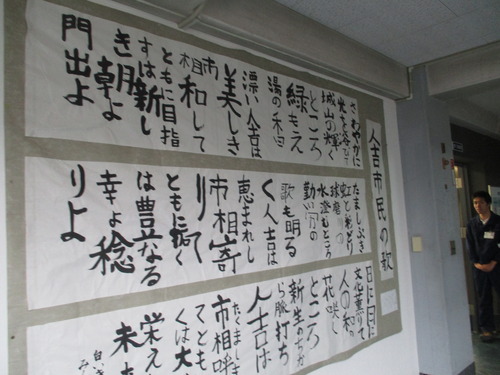 人吉市民の歌
さわやかに
光を浴びて
城山の輝く
ところ
緑もえ
湯の香
漂い人吉は
美しき
市相和して
ともに目指
すは新し
き朝よ
門出よ
たましぶき
虹とおどり
球磨の
水澄むところ
勤い
歌も明る
く人吉は
恵まれし
市相寄
りて
ともに拓く
は豊なる
幸よ稔
りよ
日に日に
文化薫りて
人の和の
花咲く
ところ
新生のちか
ら脈打ち
人吉は
たたましき
市相呼
てとも
くは大
栄え
未